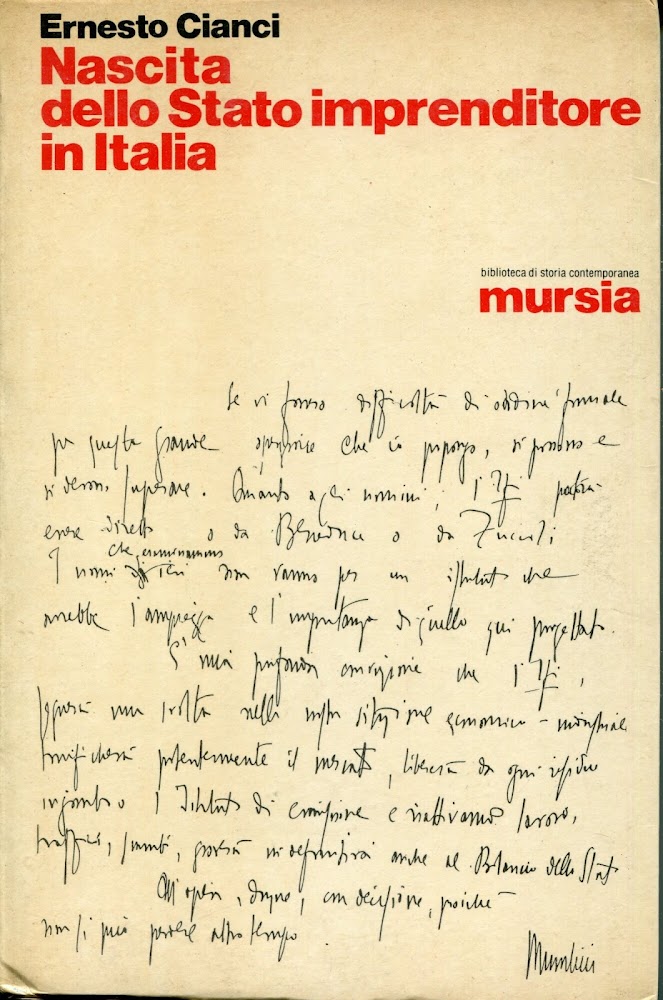 Ernesto Cianci
Nascita
dello Stato imprenditore
in Italia
biblioteca di storia contemporanea
mursia
Se vi sono difficoltà di ordine formale
per questa grande operazione che io propongo, si possono e
si devono superare. Quanto agli uomini, l'Ifi potrà
essere diretto o da Beneduce o da Zuccoli
I nomi che esaminammo ieri non vanno per un istituto che
avrebbe l'ampiezza e l'importanza di quello qui progettato.
E' mia profonda convinzione che l'Ifi,
segnerà una svolta nella nostra situazione economico-industriale
tonificherà potentemente il mercato, libererà da ogni residuo
ingombro l'Istituto di emissione e riattivando lavoro,
traffici, scambi, gioverà in definitiva anche al Bilancio dello Stato
All'opera, dunque, con decisione, poiché
non si può perdere altro tempo.
Mussolini